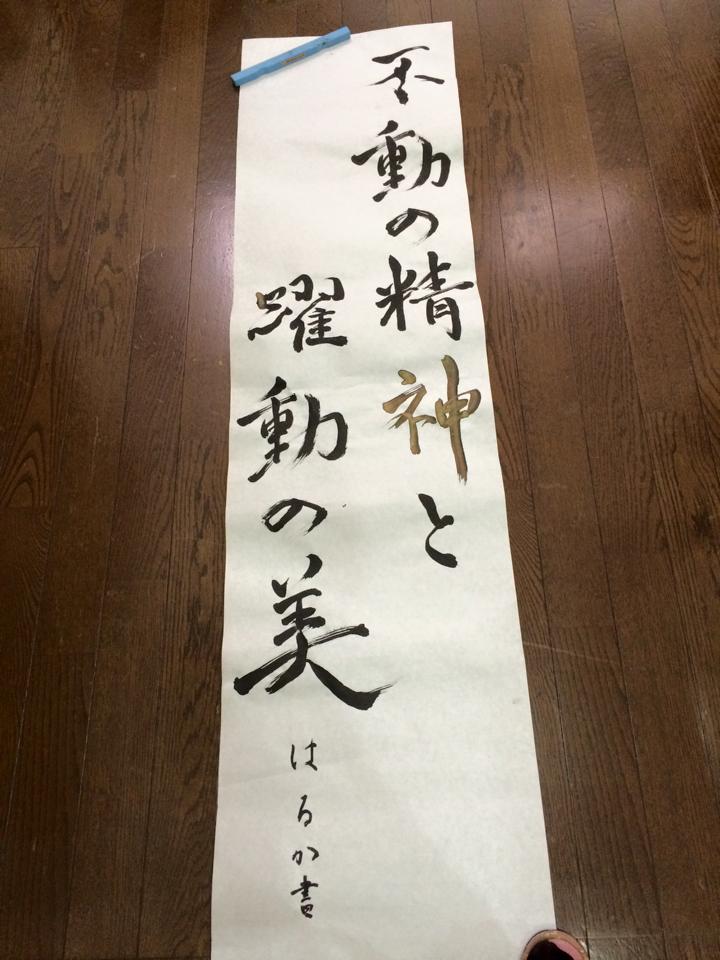 不動の精神と
躍動の美
はるか書